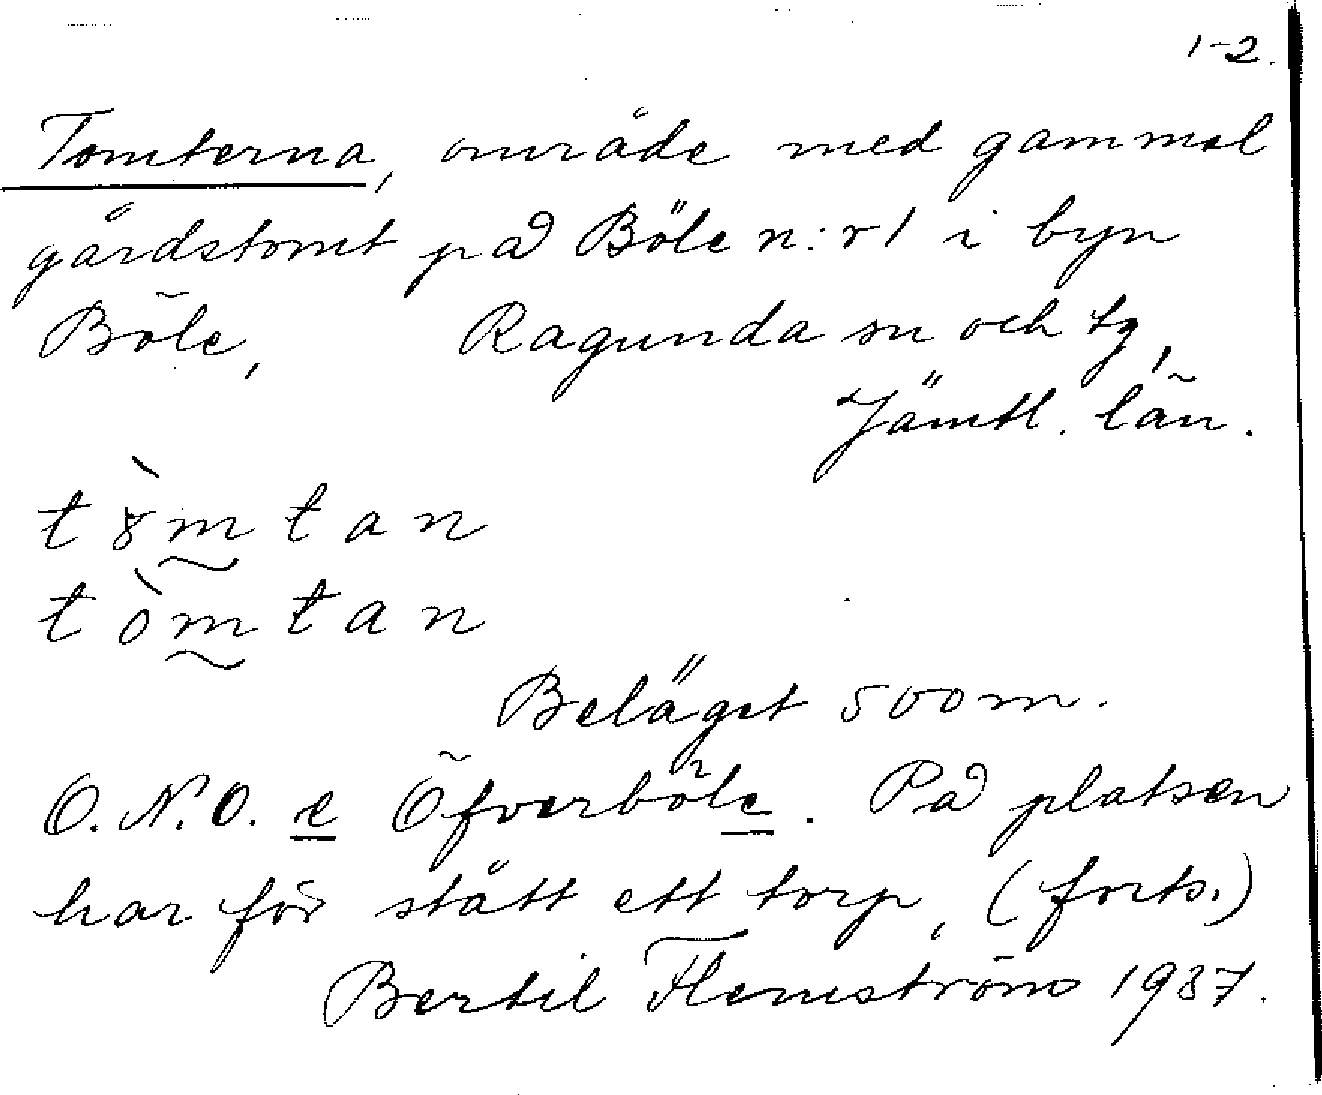 1-2.
Tomterna, område med gammal
gårdstomt på Böle n:r 1 i byn
Böle, Ragunda sn och tg,
Jämtl. län.
t ò m t a n
t ò m t a n
Beläget 500 m.
O.N.O. e Öfverböle. På platsen
har för stått ett torp, (forts.)
Bertil Flemström 1937.